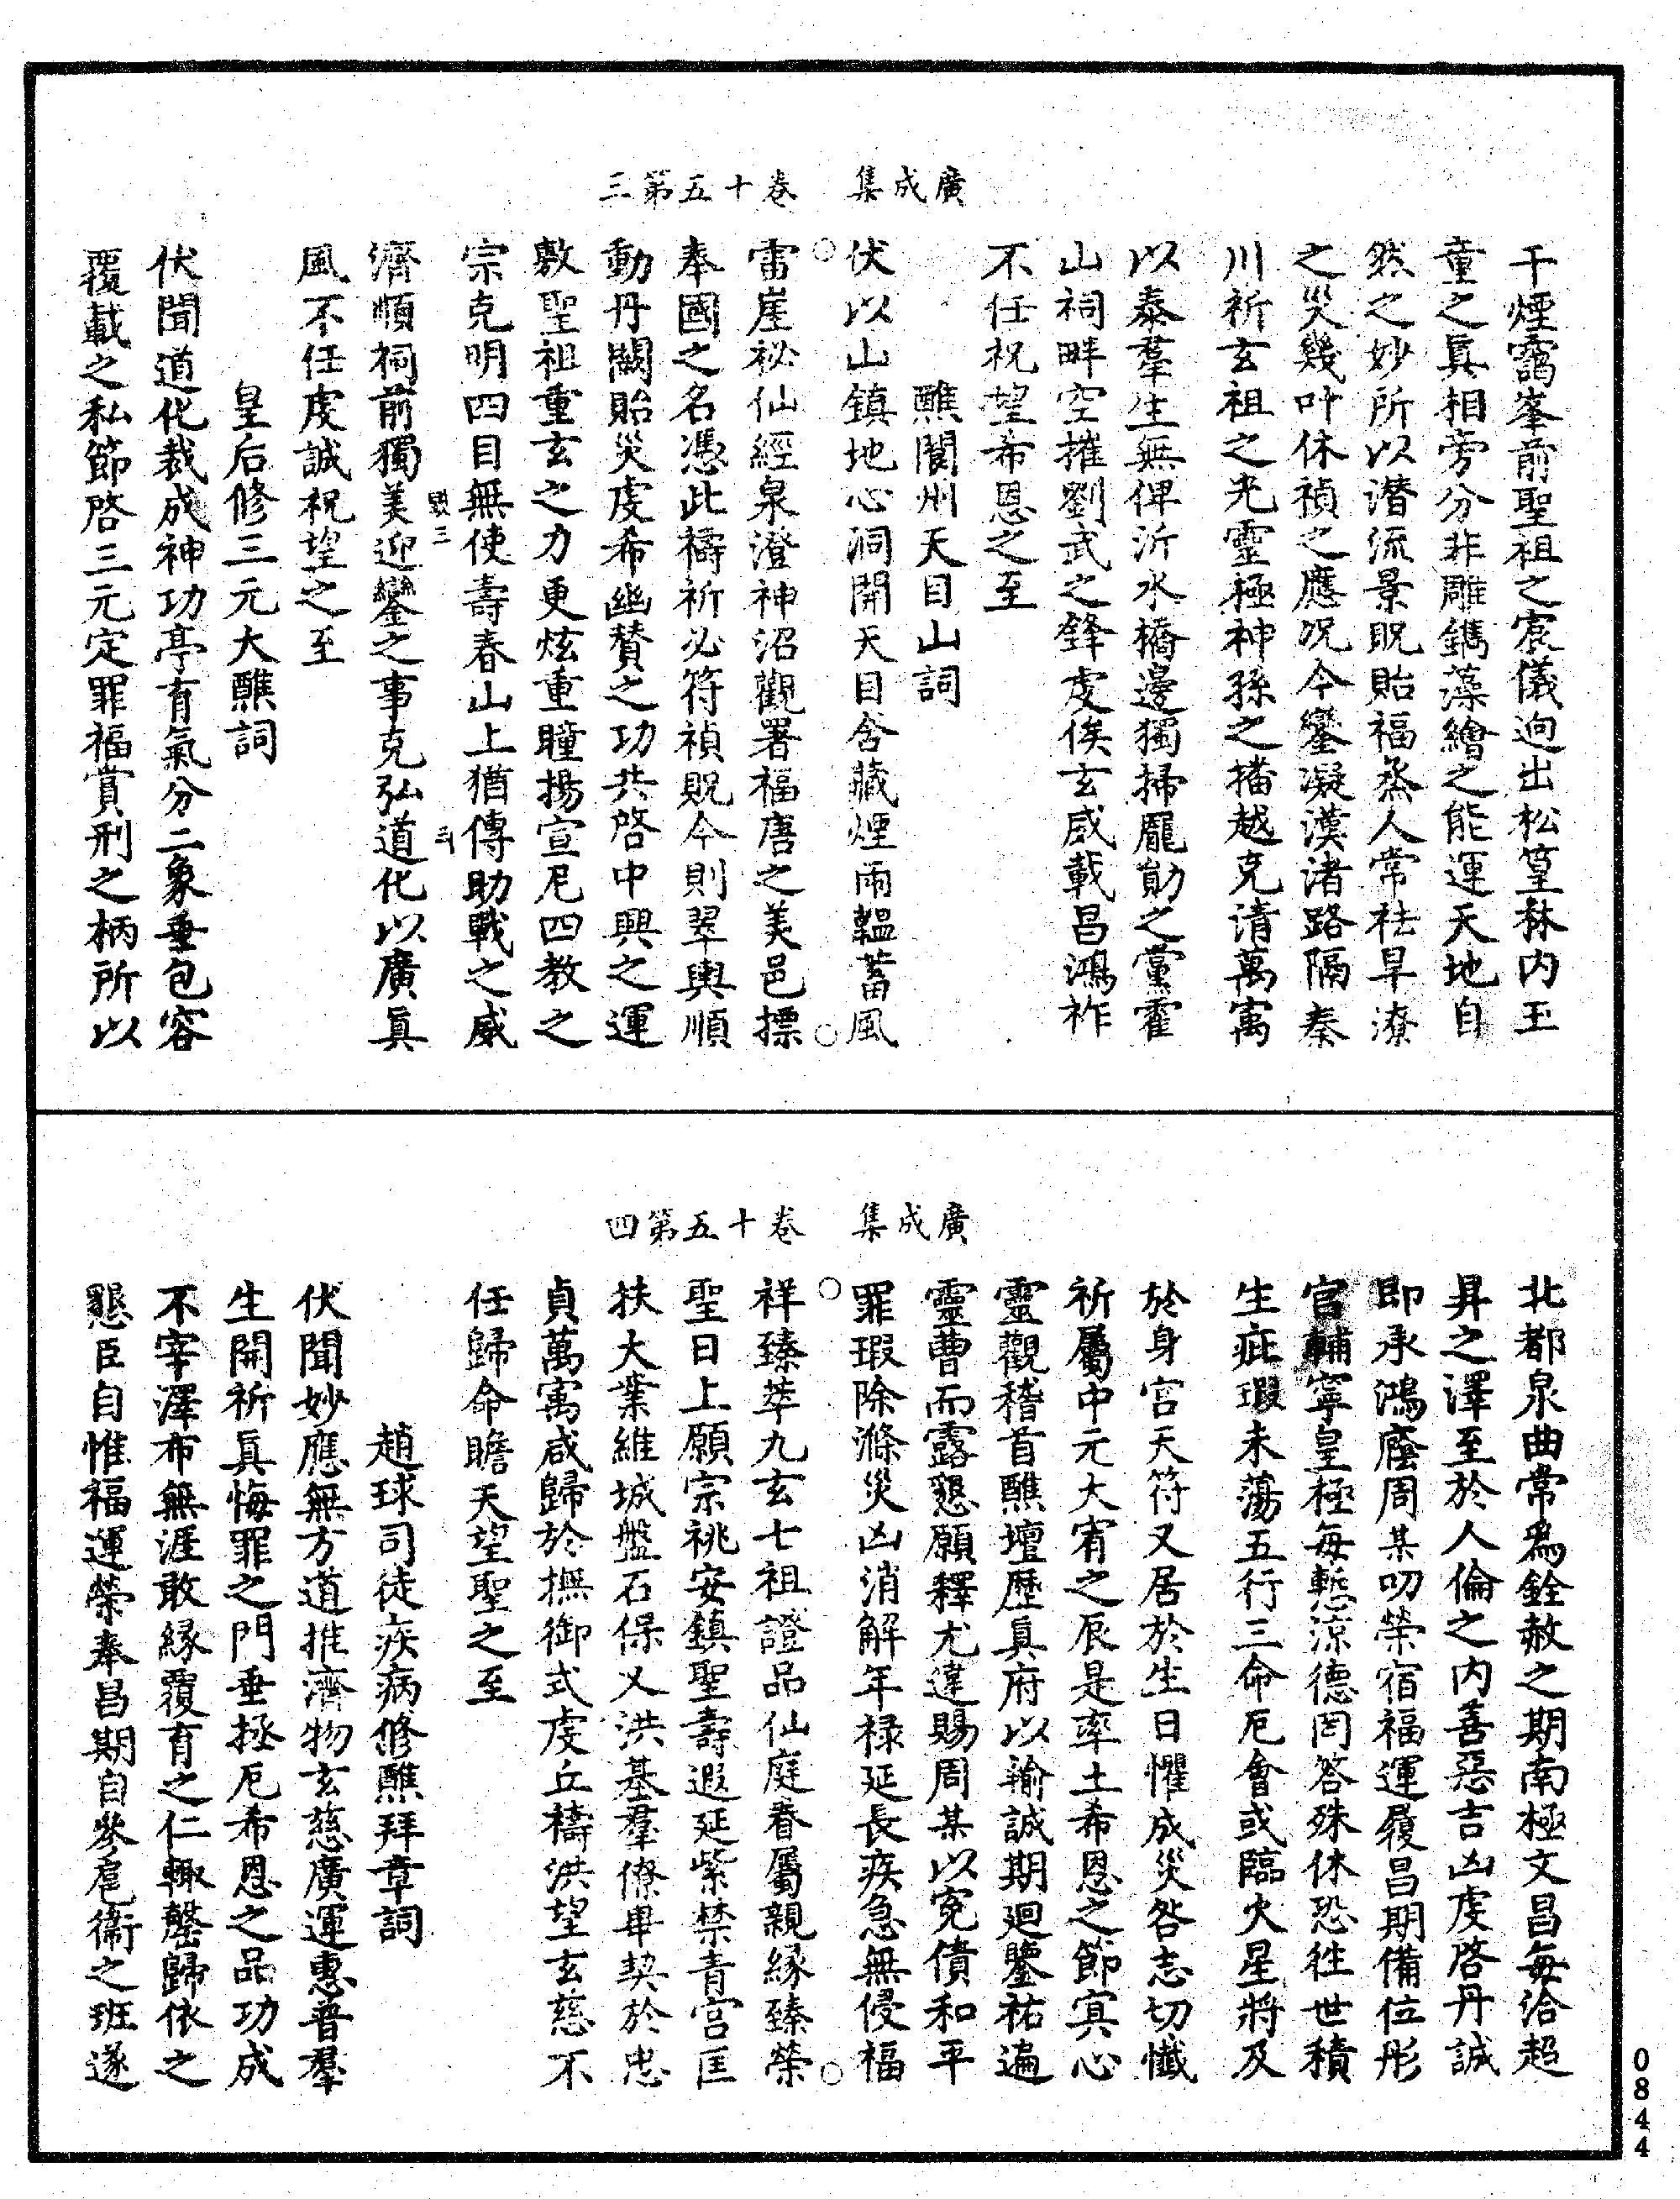 干煙靄峯前聖祖之宸儀迥出松篁林內玉
童之真相旁分非雕鐫藻繪之能運天地自
然之妙所以潛流景貺貽福烝人常祛旱潦
之災幾叶休禎之應況今鑾凝漢渚路隔秦
川祈玄祖之光靈極神孫之播越克清萬㝢
以泰羣生無俾沂水橋邊獨掃龐勛之黨霍
山祠畔空摧劉武之鋒虔俟玄威載昌鴻祚
不任祝望希恩之至
醮閬州天目山詞
伏以山鎮地心洞開天目含藏煙雨韞蓄風
廣成集 卷十五第三
雷崖祕仙經泉澄神沼觀署福唐之美邑摽
奉國之名憑此禱祈必符禎貺今則翠輿順
動丹闕貽災虔希幽贊之功共啓中興之運
敷聖祖重玄之力更炫重瞳揚宣尼四教之
宗克明四目無使壽春山上猶傳助戰之威
濟順祠前獨美迎鑾之事克弘道化以廣真
風不任虔誠祝望之至
皇后修三元大醮詞
伏聞道化裁成神功亭育氣分二象垂包容
覆載之私節啓三元定罪福賞刑之柄所以
北都泉曲常爲銓赦之期南極文昌每洽超
昇之澤至於人倫之內善惡吉凶虔啓丹誠
即承鴻廕周某叨榮宿福運履昌期備位彤
宮輔寧皇極每慙涼德罔答殊休恐往世積
生疵瑕未蕩五行三命厄會或臨火星將及
於身宮天符又居於生日懼成災咎志切懺
祈屬中元大宥之辰是率土希恩之節㝠心
靈觀稽首醮壇歷真府以輸誠期迴鑒祐遍
靈曹而露懇願釋尤違賜周某以寃債和平
罪瑕除滌災凶消解年祿延長疾急無侵福
廣成集 卷十五第四
祥臻萃九玄七祖證品仙庭眷屬親緣臻榮
聖日上願宗祧安鎮聖壽遐延紫禁青宮匡
扶大業維城盤石保乂洪基羣僚畢契於忠
貞萬㝢咸歸於撫御式虔丘禱洪望玄慈不
任歸命瞻天望聖之至
趙球司徒疾病修醮拜章詞
伏聞妙應無方道推濟物玄慈廣運惠普羣
生開祈真悔罪之門垂拯厄希恩之品功成
不宰澤布無涯敢緣覆育之仁輙罄歸依之
懇臣自惟福運榮奉昌期自參扈衞之班遂
0844